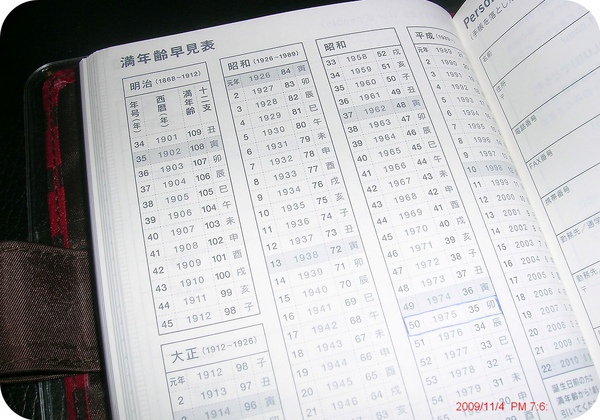 満年齢早見表
明治 (1868~1912)
年号(年) 西暦(年) 満年齢 十二支
34 1901 109 丑
35 1902 108 寅
36 1903 107 卯
37 1904 106 辰
38 1905 105 巳
39 1906 104 午
40 1907 103 未
41 1908 102 申
42 1909 101 酉
43 1910 100 戌
44 1911 99 亥
45 1912 98 子
大正 (1912~1926)
元年 1912 98 子
2 1913 97 丑
3 1914 96 寅
昭和 (1926~1989)
元年 1926 84 寅
2 1927 83 卯
3 1928 82 辰
4 1929 81 巳
5 1930 80 午
6 1931 79 未
7 1932 78 申
8 1933 77 酉
9 1934 76 戌
10 1935 75 亥
11 1936 74 子
12 1937 73 丑
13 1938 72 寅
14 1939 71 卯
15 1940 70 辰
16 1941 69 巳
17 1942 68 午
18 1943 67 未
19 1944 66 申
20 1945 65 酉
21 1946 64 戌
昭和
33 1958 52 戌
34 1959 51 亥
35 1960 50 子
36 1961 49 丑
37 1962 48 寅
38 1963 47 卯
39 1964 46 辰
40 1965 45 巳
41 1966 44 午
42 1967 43 未
43 1968 42 申
44 1969 41 酉
45 1970 40 戌
46 1971 39 亥
47 1972 38 子
48 1973 37 丑
49 1974 36 寅
50 1975 35 卯
51 1976 34 辰
52 1977 33 巳
53 1978 32 午
54 1979 31 未
平成
元年 1989
2 1990
3 1991
10 1998
11 1999
12 2000
22 2010
誕生日前の方は
Person
名前
住所
電話番号
FAX番号
携帯番号
2009/11/4 PM 7:6: